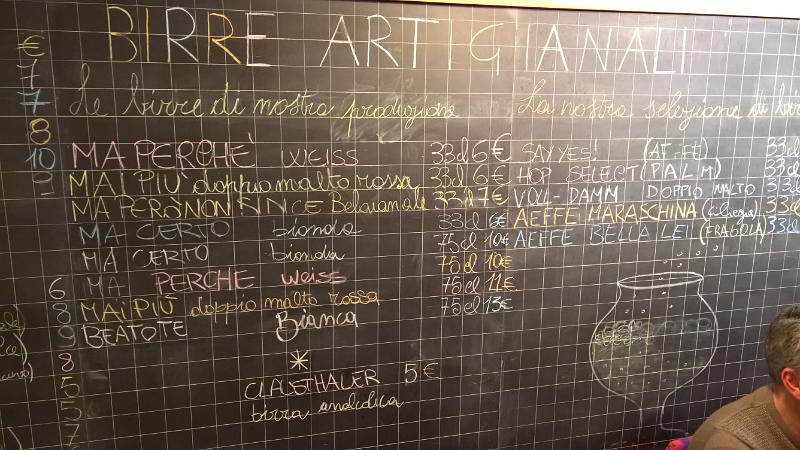 BIRRE ARTIGIANALI
€
7
7
8
10
6
8
9
8
5
5
7
Le birre di nostra produzione
MA PERCHE' WEISS 33cl 6€
MAI PIÙ doppio malto rossa 33cl 6€
MA PERÒ NON 33cl 7€
MA CERTO bionda 33cl 6€
MA CERTO bionda 75cl 10€
MA PERCHE weiss 75cl 10€
MAI PIÙ doppio malto rossa 75cl 11€
BEATOTE Bianca 75cl 13€
*
CLAUSTHALER 5€
birra analcolica
La nostra selezione di bir
SAY YES! 33cl
HOP SELECT (PALM) 33cl
VOLL-DAMM DOPPIO MALTO 33cl
AEFFE MARASCHINA (ciliegia) 33cl
AEFFE BELLA LEI (FRAGOLA) 33cl